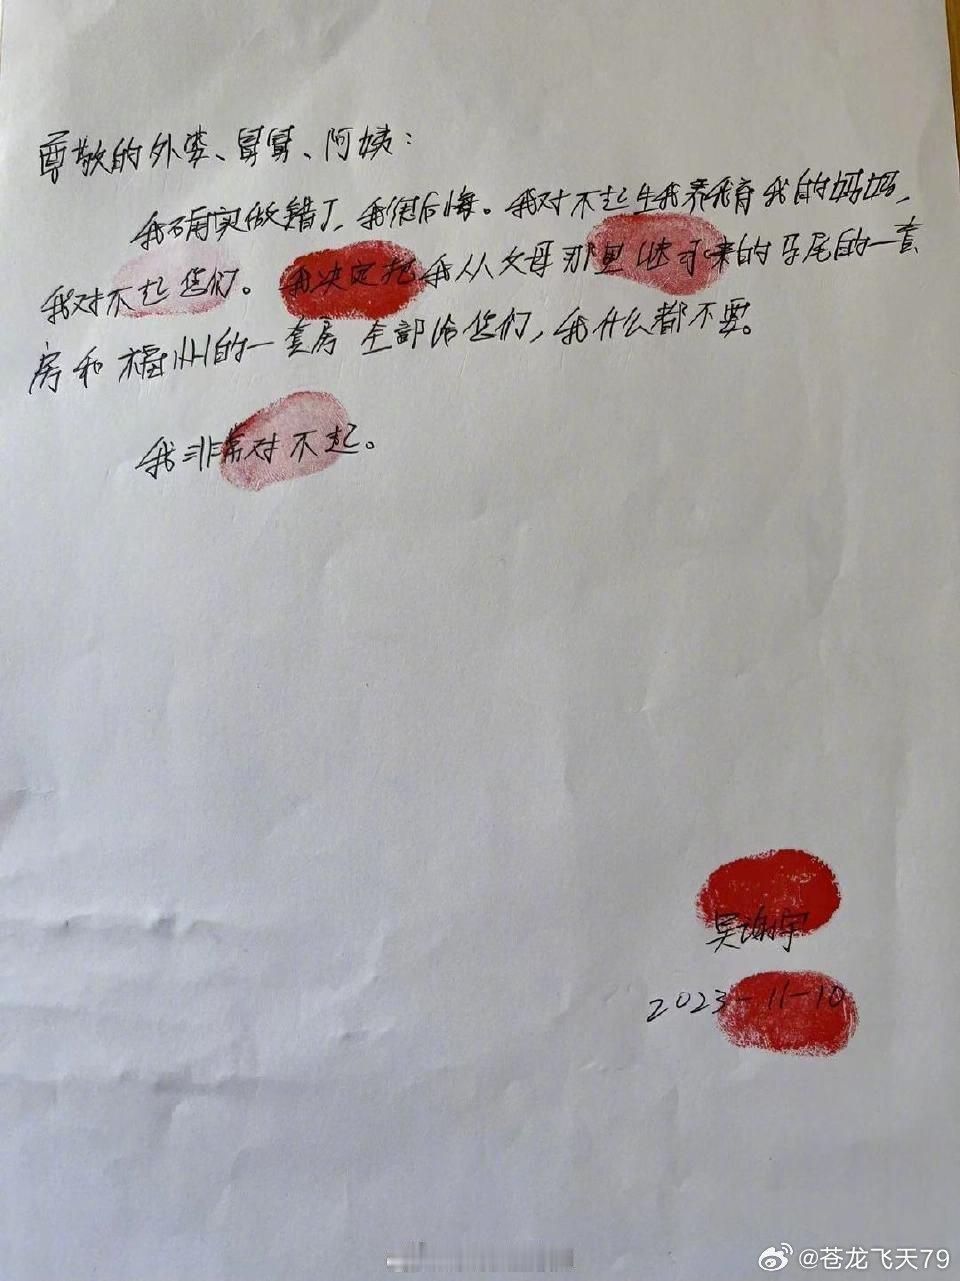 尊敬的外婆、舅舅、阿姨：
我确实做错了，我很后悔。我对不起生我养我育我的妈妈，
我对不起您们。我决定把我从父母那里继承来的马尾的一套
房和福州的一套房全部给您们，我什么都不要。
我非常对不起。
吴谢宇
2023-11-10
@苍龙飞天79